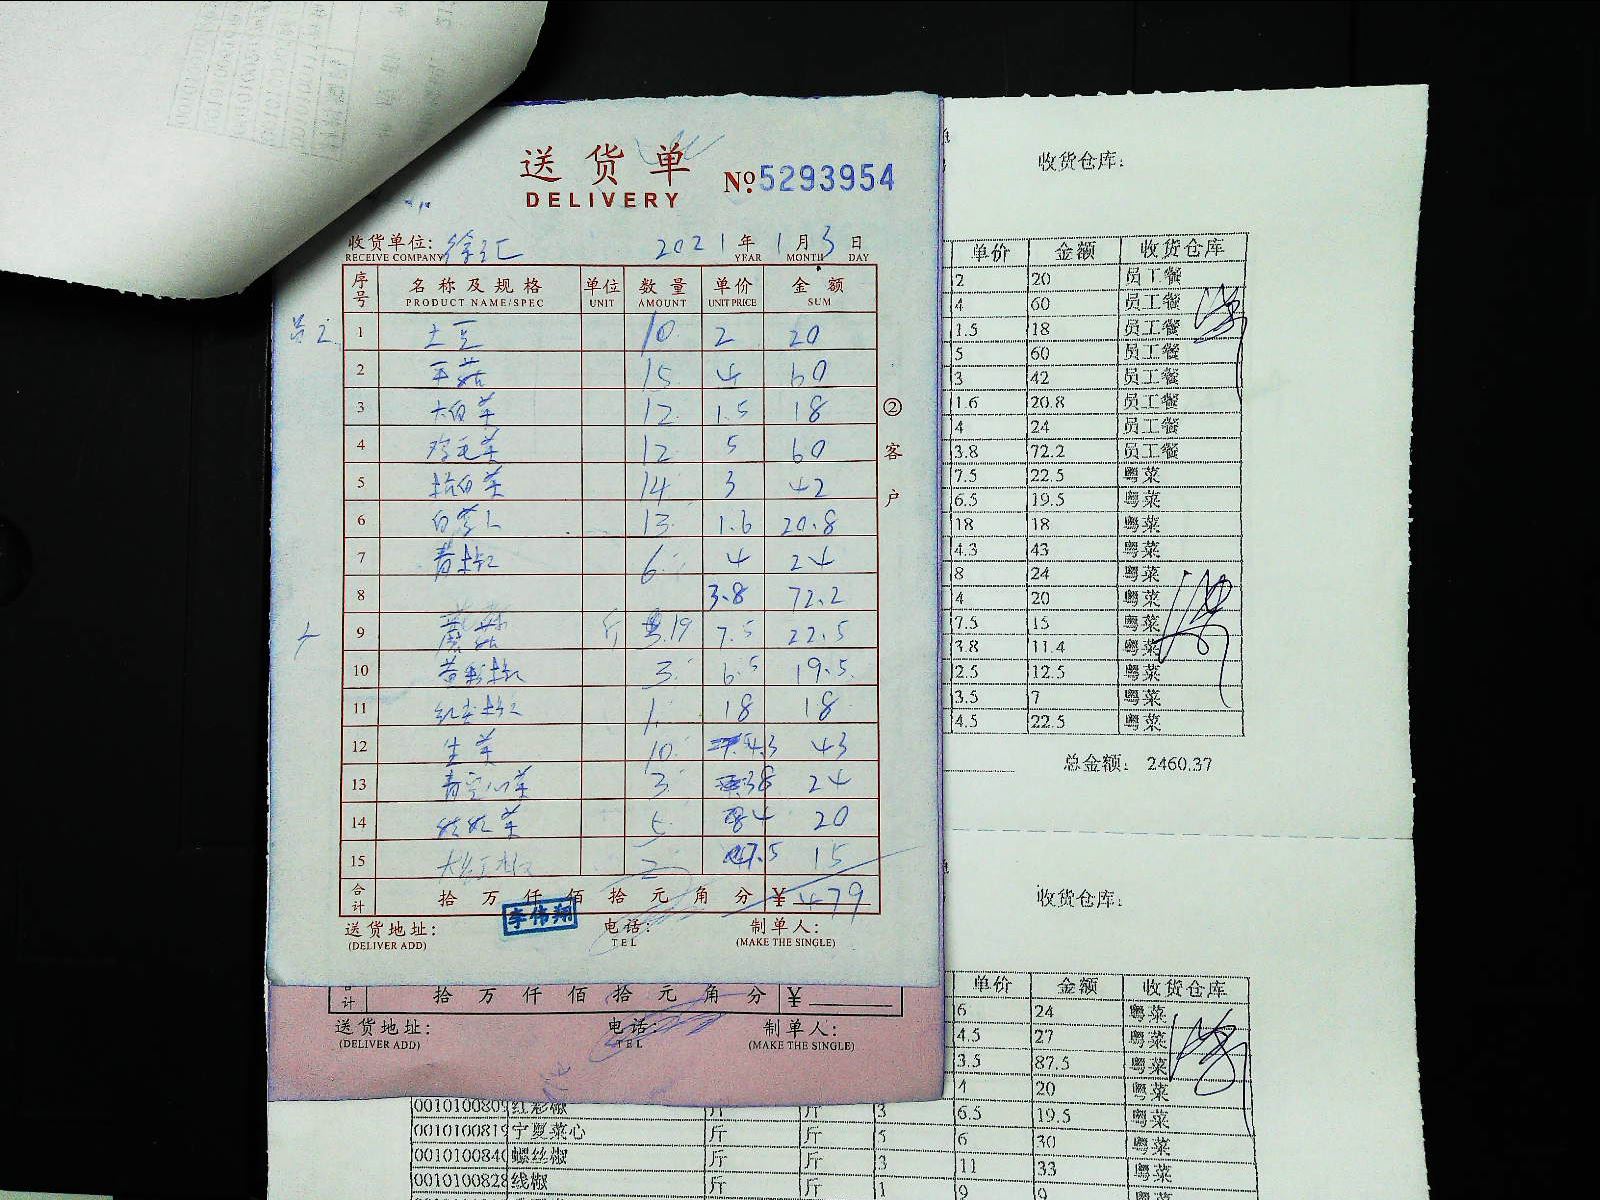 送货单
DELIVERY
No. 5293954
收货单位: 徐汇 2021 年 1 月 3 日
RECEIVE COMPANY YEAR MONTH DAY
序号 名称及规格 单位 数量 单价 金额
PRODUCT NAME/SPEC UNIT AMOUNT UNIT PRICE SUM
1 土豆 10 2 20
2 平菇 15 4 60
3 大白菜 12 1.5 18
4 鸡毛菜 12 5 60
5 杭白菜 14 3 42
6 白萝卜 13 1.6 20.8
7 青椒 6 4 24
8 3.8 72.2
9 蘑菇 斤 19 7.5 22.5
10 青彩椒 3 6.5 19.5
11 1 18 18
12 生菜 10 4.3 43
13 青空心菜 3 8 24
14 娃娃菜 5 4 20
15 2 7.5 15
合计 拾 万 仟 佰 拾 元 角 分 ¥ 479
李伟翔
送货地址: 电话: 制单人:
(DELIVER ADD) TEL (MAKE THE SINGLE)
② 客户
合计 拾 万 仟 佰 拾 元 角 分 ¥
送货地址: 电话: 制单人:
(DELIVER ADD) TEL (MAKE THE SINGLE)
收货仓库:
单价 金额 收货仓库
2 20 员工餐
4 60 员工餐
1.5 18 员工餐
5 60 员工餐
3 42 员工餐
1.6 20.8 员工餐
4 24 员工餐
3.8 72.2 员工餐
7.5 22.5 粤菜
6.5 19.5 粤菜
18 18 粤菜
4.3 43 粤菜
8 24 粤菜
4 20 粤菜
7.5 15 粤菜
3.8 11.4 粤菜
2.5 12.5 粤菜
3.5 7 粤菜
4.5 22.5 粤菜
总金额: 2460.37
收货仓库:
单价 金额 收货仓库
6 24 粤菜
4.5 27 粤菜
3.5 87.5 粤菜
4 20 粤菜
红彩椒 斤 斤 3 6.5 19.5 粤菜
0010100819 宁夏菜心 斤 斤 5 6 30 粤菜
001010084 螺丝椒 斤 斤 3 11 33 粤菜
0010100828 线椒 斤 斤 1 9 9 粤菜